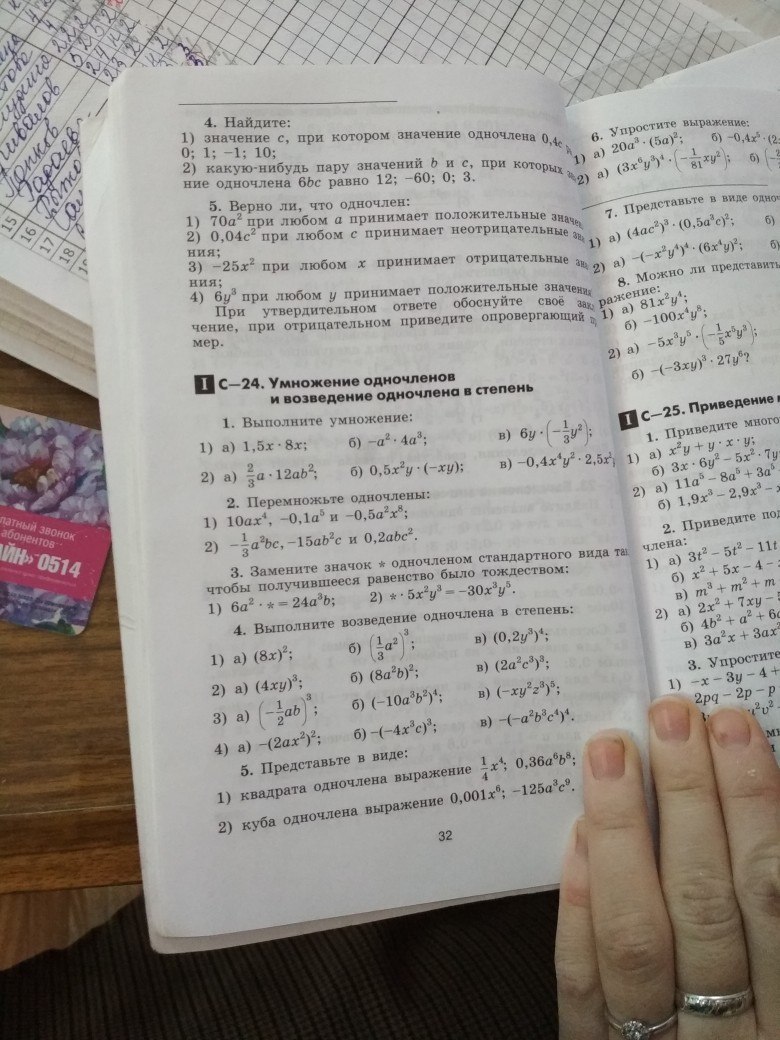 4. Найдите:
1) значение c, при котором значение одночлена 0,4c
0; 1; −1; 10;
2) какую-нибудь пару значений b и c, при которых
ние одночлена 6bc равно 12; −60; 0; 3.
5. Верно ли, что одночлен:
1) 70a² при любом a принимает положительные
2) 0,04c² при любом c принимает неотрицательные
ния;
3) −25x² при любом x принимает отрицательные
ния;
4) 6y³ при любом y принимает положительные значения
При утвердительном ответе обоснуйте своё
чение, при отрицательном приведите опровергающий
мер.
I С—24. Умножение одночленов
и возведение одночлена в степень
1. Выполните умножение:
1) а) 1,5x · 8x; б) −a² · 4a³; в) 6y · (−1/3 y²);
2) а) 2/3 a · 12ab²; б) 0,5x²y · (−xy); в) −0,4x⁴y² · 2,5x²
2. Перемножьте одночлены:
1) 10ax⁴, −0,1a⁵ и −0,5a²x⁸;
2) −1/3 a²bc, −15ab²c и 0,2abc².
3. Замените значок * одночленом стандартного вида так
чтобы получившееся равенство было тождеством:
1) 6a² · * = 24a³b; 2) * · 5x²y³ = −30x³y⁵.
4. Выполните возведение одночлена в степень:
1) а) (8x)²; б) (1/3 a²)³; в) (0,2y³)⁴;
2) а) (4xy)³; б) (8a²b)²; в) (2a²c³)³;
3) а) (−1/2 ab)³; б) (−10a³b²)⁴; в) (−xy²z³)⁵;
4) а) −(2ax²)²; б) −(−4x³c)³; в) −(−a²b³c⁴)⁴.
5. Представьте в виде:
1) квадрата одночлена выражение 1/4 x⁴; 0,36a⁶b⁸;
2) куба одночлена выражение 0,001x⁶; −125a³c⁹.
32
6. Упростите выражение:
1) а) 20a³ · (5a)²; б) −0,4x⁵ · (2
2) а) (3x⁶y³)⁴ · (−1/81 xy²); б)
7. Представьте в виде
1) а) (4ac²)³ · (0,5a³c)²; б)
2) а) −(−x²y⁴)⁴ · (6x⁴y)²; б)
8. Можно ли представить
ражение:
1) а) 81x²y⁴;
б) −100x⁴y⁸;
2) а) −5x³y⁵ · (−1/5 x⁵y³);
б) −(−3xy)³ · 27y⁶?
I С—25. Приведение
1. Приведите
1) а) x²y + y · x · y;
б) 3x · 6y² − 5x² · 7y
2) а) 11a⁵ − 8a⁵ + 3a⁵
б) 1,9x³ − 2,9x³ −
2. Приведите
члена:
1) а) 3t² − 5t² − 11t
б) x² + 5x − 4 −
в) m³ + m² + m
2) а) 2x² + 7xy −
б) 4b² + a² +
в) 3a²x + 3ax²
3. Упростите
1) −x − 3y − 4 +
2pq − 2p − p
15
16
17
18
платный звонок
абонентов
АЙН» 0514